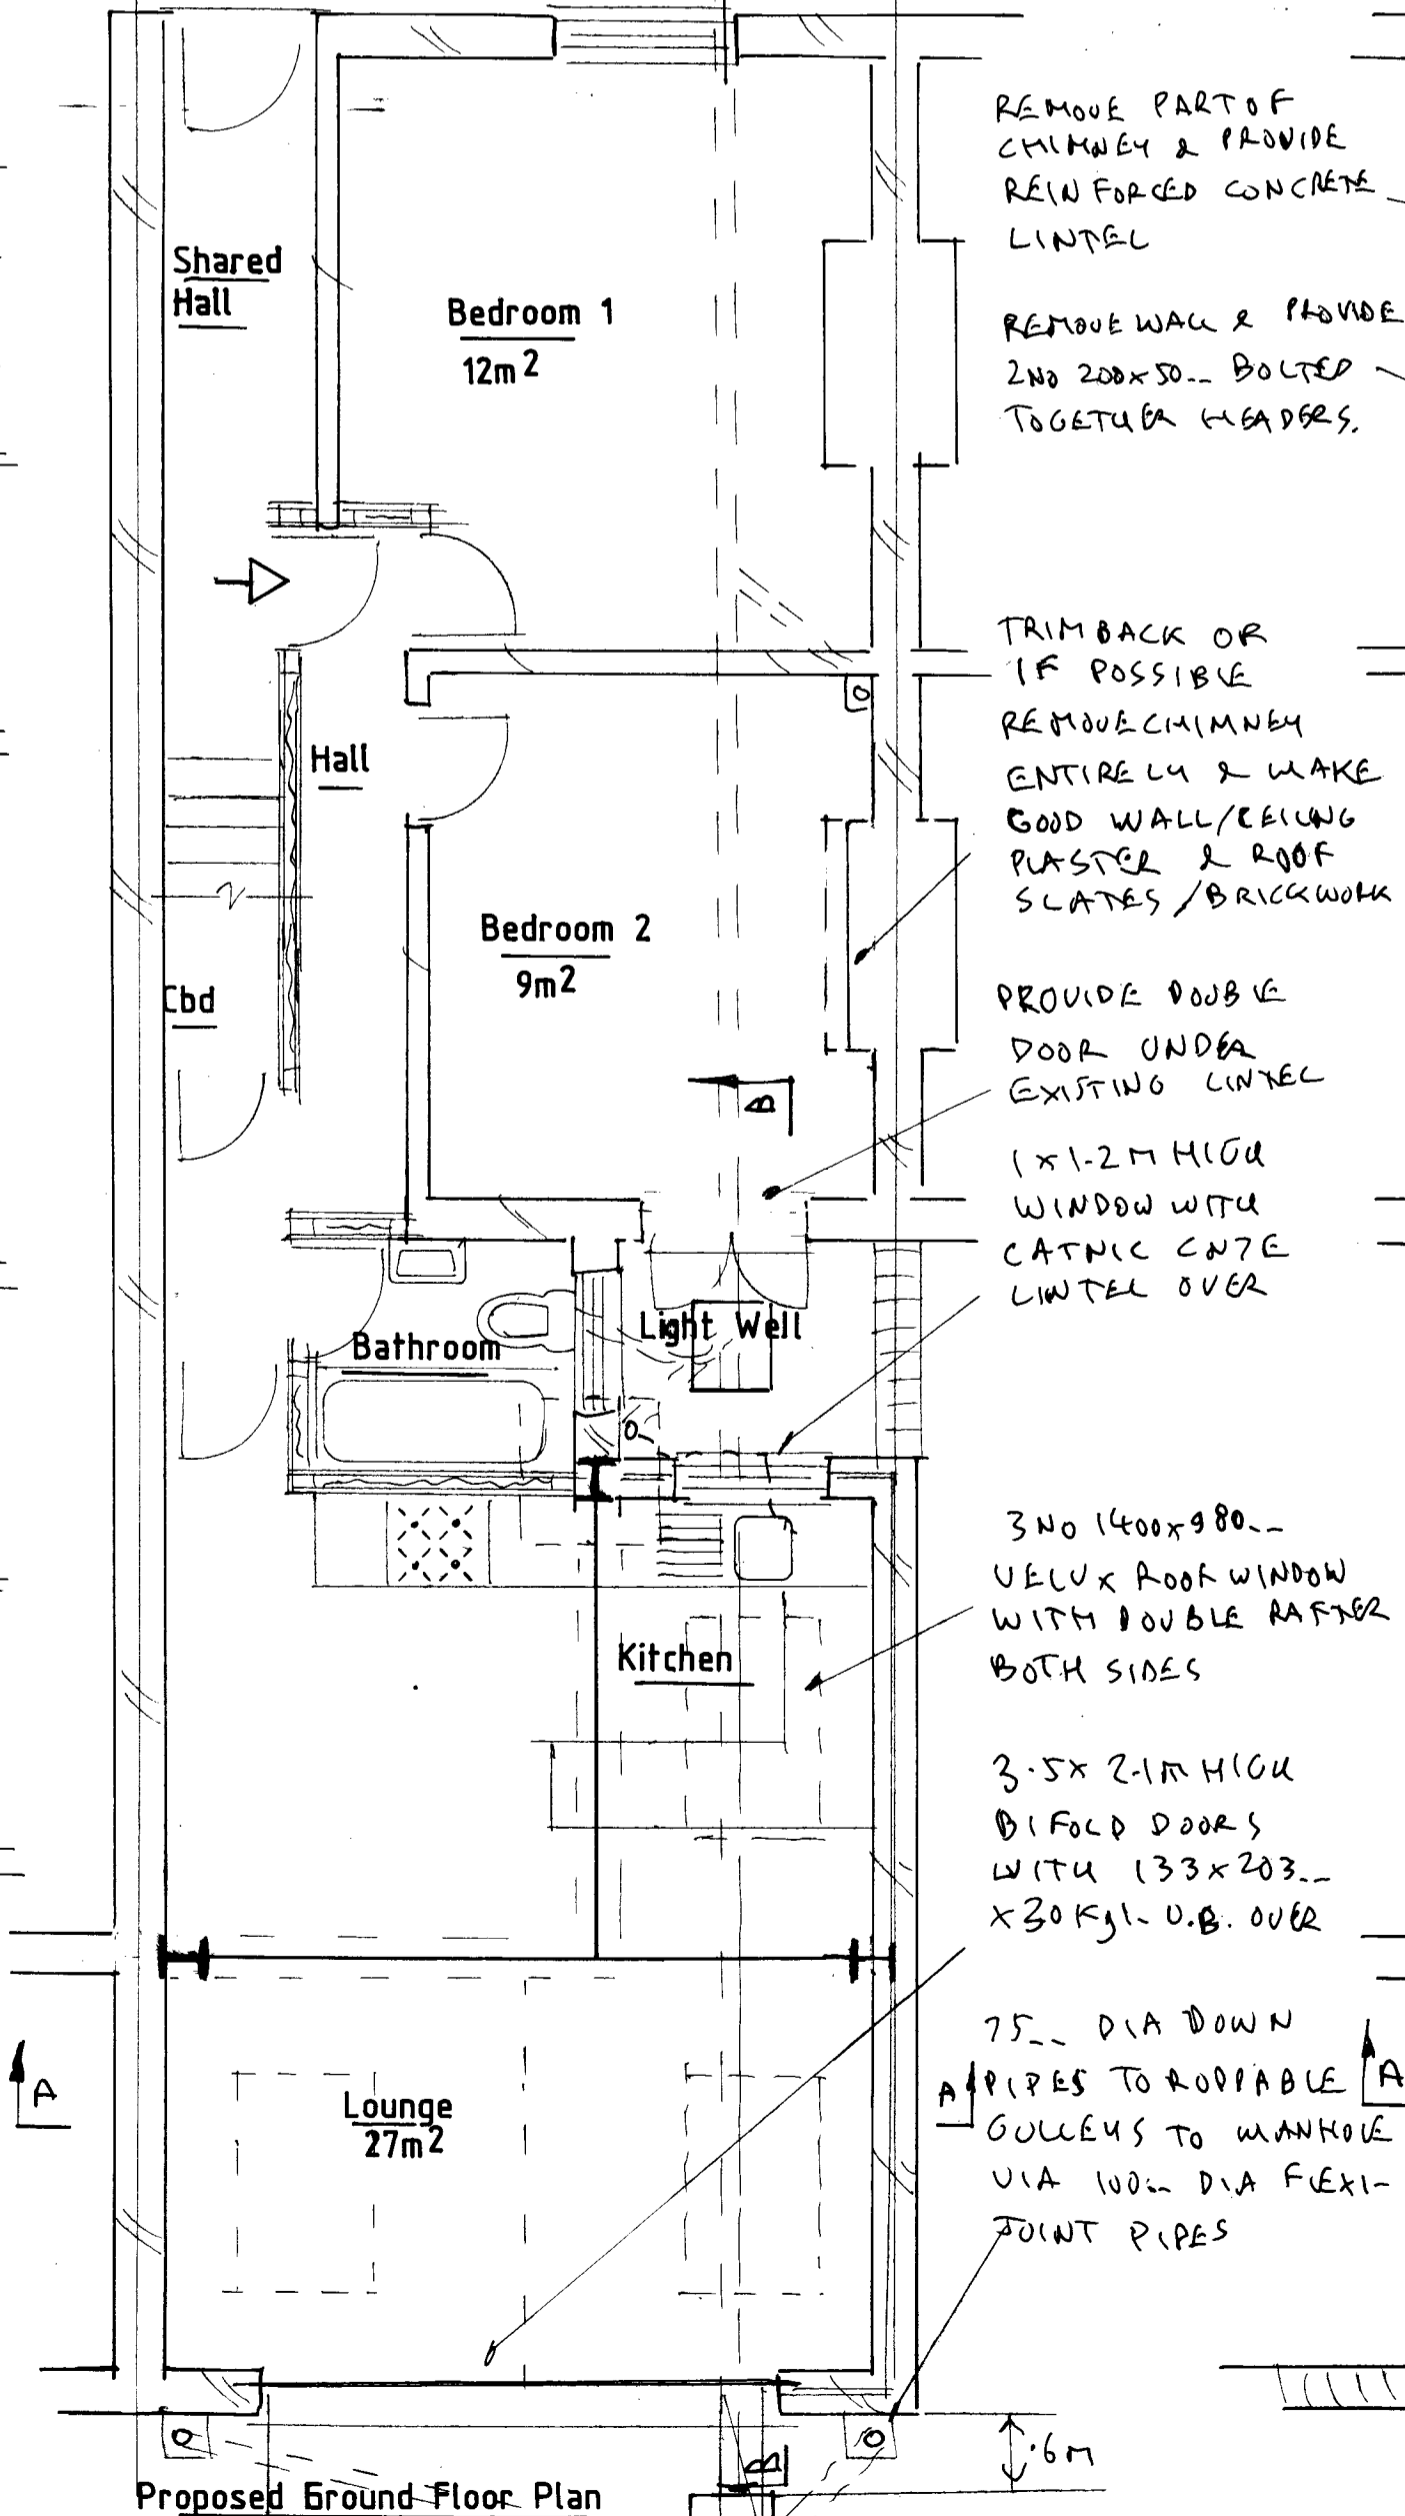 Shared
Hall
Bedroom 1
12m2
Hall
Bedroom 2
9m2
Cbd
B
Light Well
Bathroom
Kitchen
A
Lounge
27m2
A
A
B
.6M
Proposed Ground Floor Plan
REMOVE PART OF
CHIMNEY & PROVIDE
REINFORCED CONCRETE
LINTEL
REMOVE WALL & PROVIDE
2NO 200x50-- BOLTED
TOGETHER HEADERS.
TRIM BACK OR
IF POSSIBLE
REMOVE CHIMNEY
ENTIRELY & MAKE
GOOD WALL/CEILING
PLASTER & ROOF
SLATES/BRICKWORK
PROVIDE DOUBLE
DOOR UNDER
EXISTING LINTEL
1x1.2M HIGH
WINDOW WITH
CATNIC CN7E
LINTEL OVER
3NO 1400x980--
VELUX ROOF WINDOW
WITH DOUBLE RAFTER
BOTH SIDES
3.5x2.1M HIGH
BIFOLD DOORS
WITH 133x203--
x30Kg/- U.B. OVER
75-- DIA DOWN
PIPES TO RODDABLE
GULLEYS TO MANHOLE
VIA 100-- DIA FLEXI-
JOINT PIPES